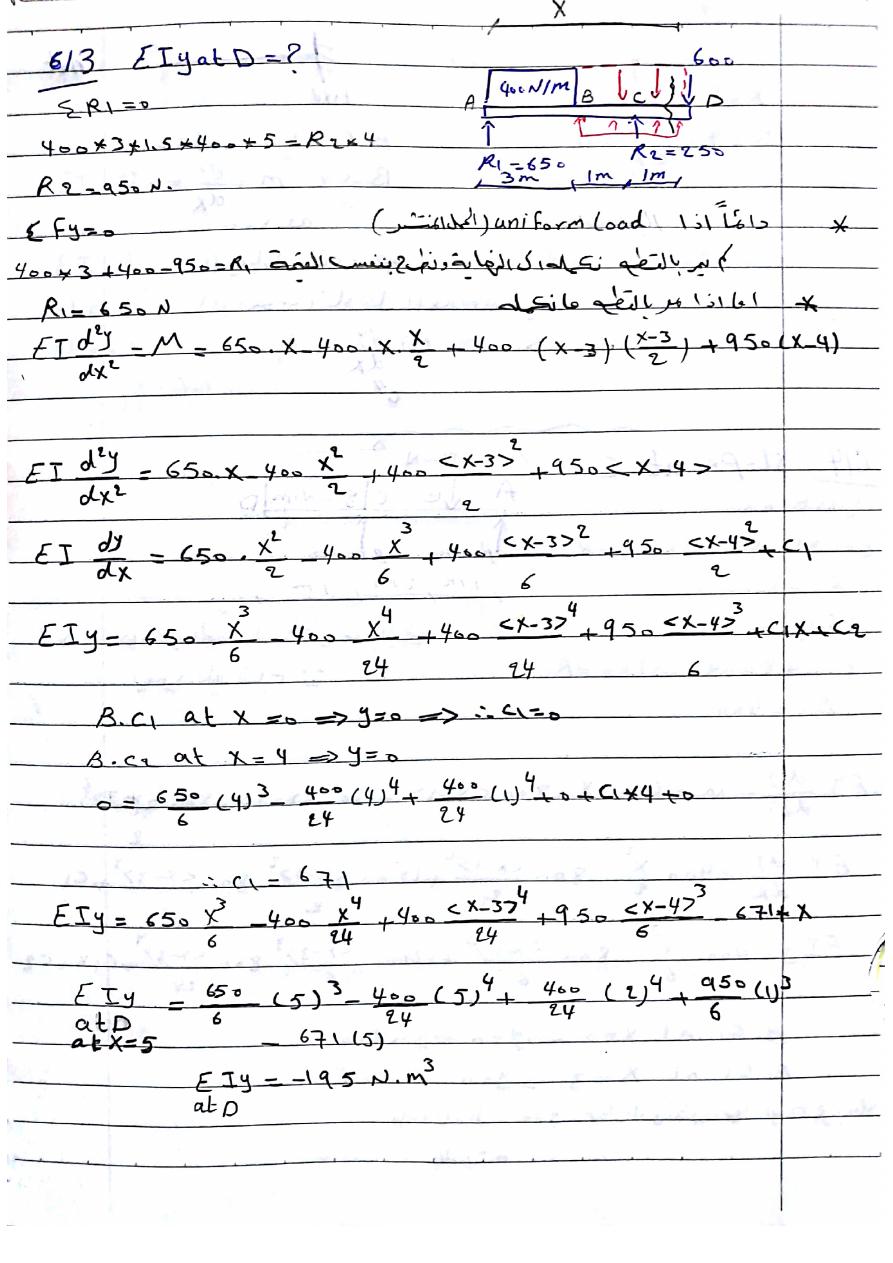 X
6/3 EIy at D = ?
600
400N/m
A B C D
ΣR1=0
R1=650 R2=250
3m 1m 1m
400*3*1.5*400*5=R2*4
R2=950 N.
ΣFy=0
* دائماً اذا uniform Load (الحمل المنتشر)
400*3+400-950=R1
لم يمر بالقطع نكمله الى النهاية ونطرح بنفس القيمة
R1=650 N
* اما اذا مر بالقطع مانكمله
EI d²y/dx² = M = 650.x-400.x.x/2 + 400 (x-3)(x-3/2) + 950(x-4)
EI d²y/dx² = 650.x-400 x²/2 +400 <x-3>²/2 +950<x-4>
EI dy/dx = 650.x²/2 -400 x³/6 +400 <x-3>²/6 +950 <x-4>²/2 +C1
EIy= 650 x³/6 -400 x⁴/24 +400 <x-3>⁴/24 +950 <x-4>³/6 +C1x+C2
B.C1 at x=0 ⇒ y=0 ⇒ ∴C1=0
B.C2 at x=4 ⇒ y=0
0= 650/6 (4)³- 400/24 (4)⁴+ 400/24 (1)⁴+0+C1*4+0
∴ C1 = 671
EIy= 650 x³/6 -400 x⁴/24 +400 <x-3>⁴/24 +950 <x-4>³/6 - 671*x
EIy = 650/6 (5)³- 400/24 (5)⁴+ 400/24 (2)⁴+ 950/6 (1)³
at D
at x=5 - 671(5)
EIy = -195 N.m³
at D